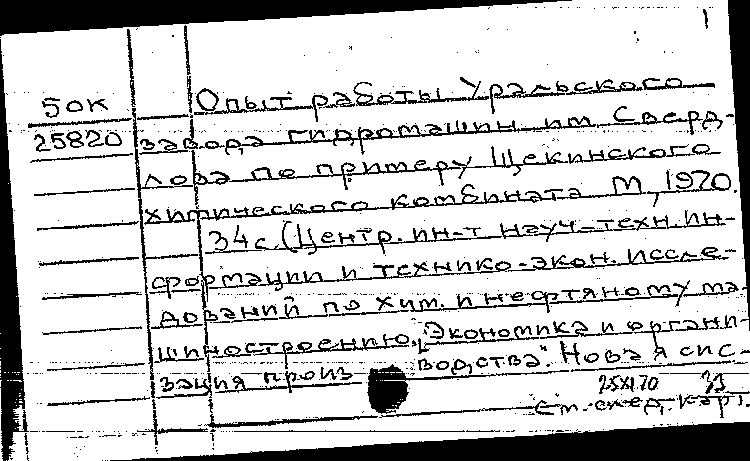 1
50К
25820
Опыт работы Уральского
завода гидромашин им. Сверд-
лова по примеру Щекинского
химического комбината М., 1970.
34с. (Центр. ин-т науч-техн. ин-
формации и технико-экон. иссле-
дований по хим. и нефтяному ма-
шиностроению. "Экономика и органи-
зация производства". Новая сис-
25XI.70
См. след. карт.